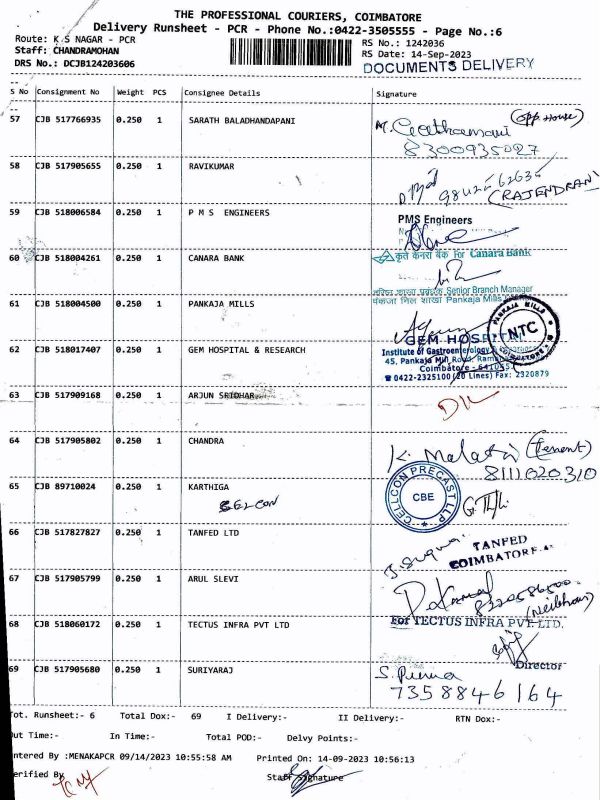 THE PROFESSIONAL COURIERS, COIMBATORE
Delivery Runsheet - PCR - Phone No.:0422-3505555 - Page No.:6
Route: K.S NAGAR - PCR
RS No.: 1242036
Staff: CHANDRAMOHAN
RS Date: 14-Sep-2023
DRS No.: DCJB124203606
DOCUMENTS DELIVERY
S No Consignment No Weight PCS Consignee Details Signature
57 CJB 517766935 0.250 1 SARATH BALADHANDAPANI
(opp.House)
8300935027
58 CJB 517905655 0.250 1 RAVIKUMAR
(RAJENDRAN)
59 CJB 518006584 0.250 1 P M S ENGINEERS
PMS Engineers
60 CJB 518004261 0.250 1 CANARA BANK
कृते केनरा बैंक For Canara Bank
Senior Branch Manager
61 CJB 518004500 0.250 1 PANKAJA MILLS
Pankaja Mills
PANKAJA MILLS
NTC
COIMBATORE
62 CJB 518017407 0.250 1 GEM HOSPITAL & RESEARCH
GEM HOSPITAL
Institute of Gastroenterology
45, Pankaja Mill Road,
Coimbatore - 641045
☎ 0422-2325100 (20 Lines) Fax: 2320879
63 CJB 517909168 0.250 1 ARJUN SRIDHAR
64 CJB 517905802 0.250 1 CHANDRA
K. Malathi (Tenent)
8111020310
65 CJB 89710024 0.250 1 KARTHIGA
CELCON
CELLCON PRECAST LLP
CBE
66 CJB 517827827 0.250 1 TANFED LTD
TANFED
COIMBATORE
67 CJB 517905799 0.250 1 ARUL SLEVI
(Neibhour)
68 CJB 518060172 0.250 1 TECTUS INFRA PVT LTD
For TECTUS INFRA PVT. LTD.
Director
69 CJB 517905680 0.250 1 SURIYARAJ
S. Purna
7358846164
Tot. Runsheet:- 6 Total Dox:- 69 I Delivery:- II Delivery:- RTN Dox:-
Out Time:- In Time:- Total POD:- Delvy Points:-
Entered By :MENAKAPCR 09/14/2023 10:55:58 AM Printed On: 14-09-2023 10:56:13
Verified By
Staff Signature